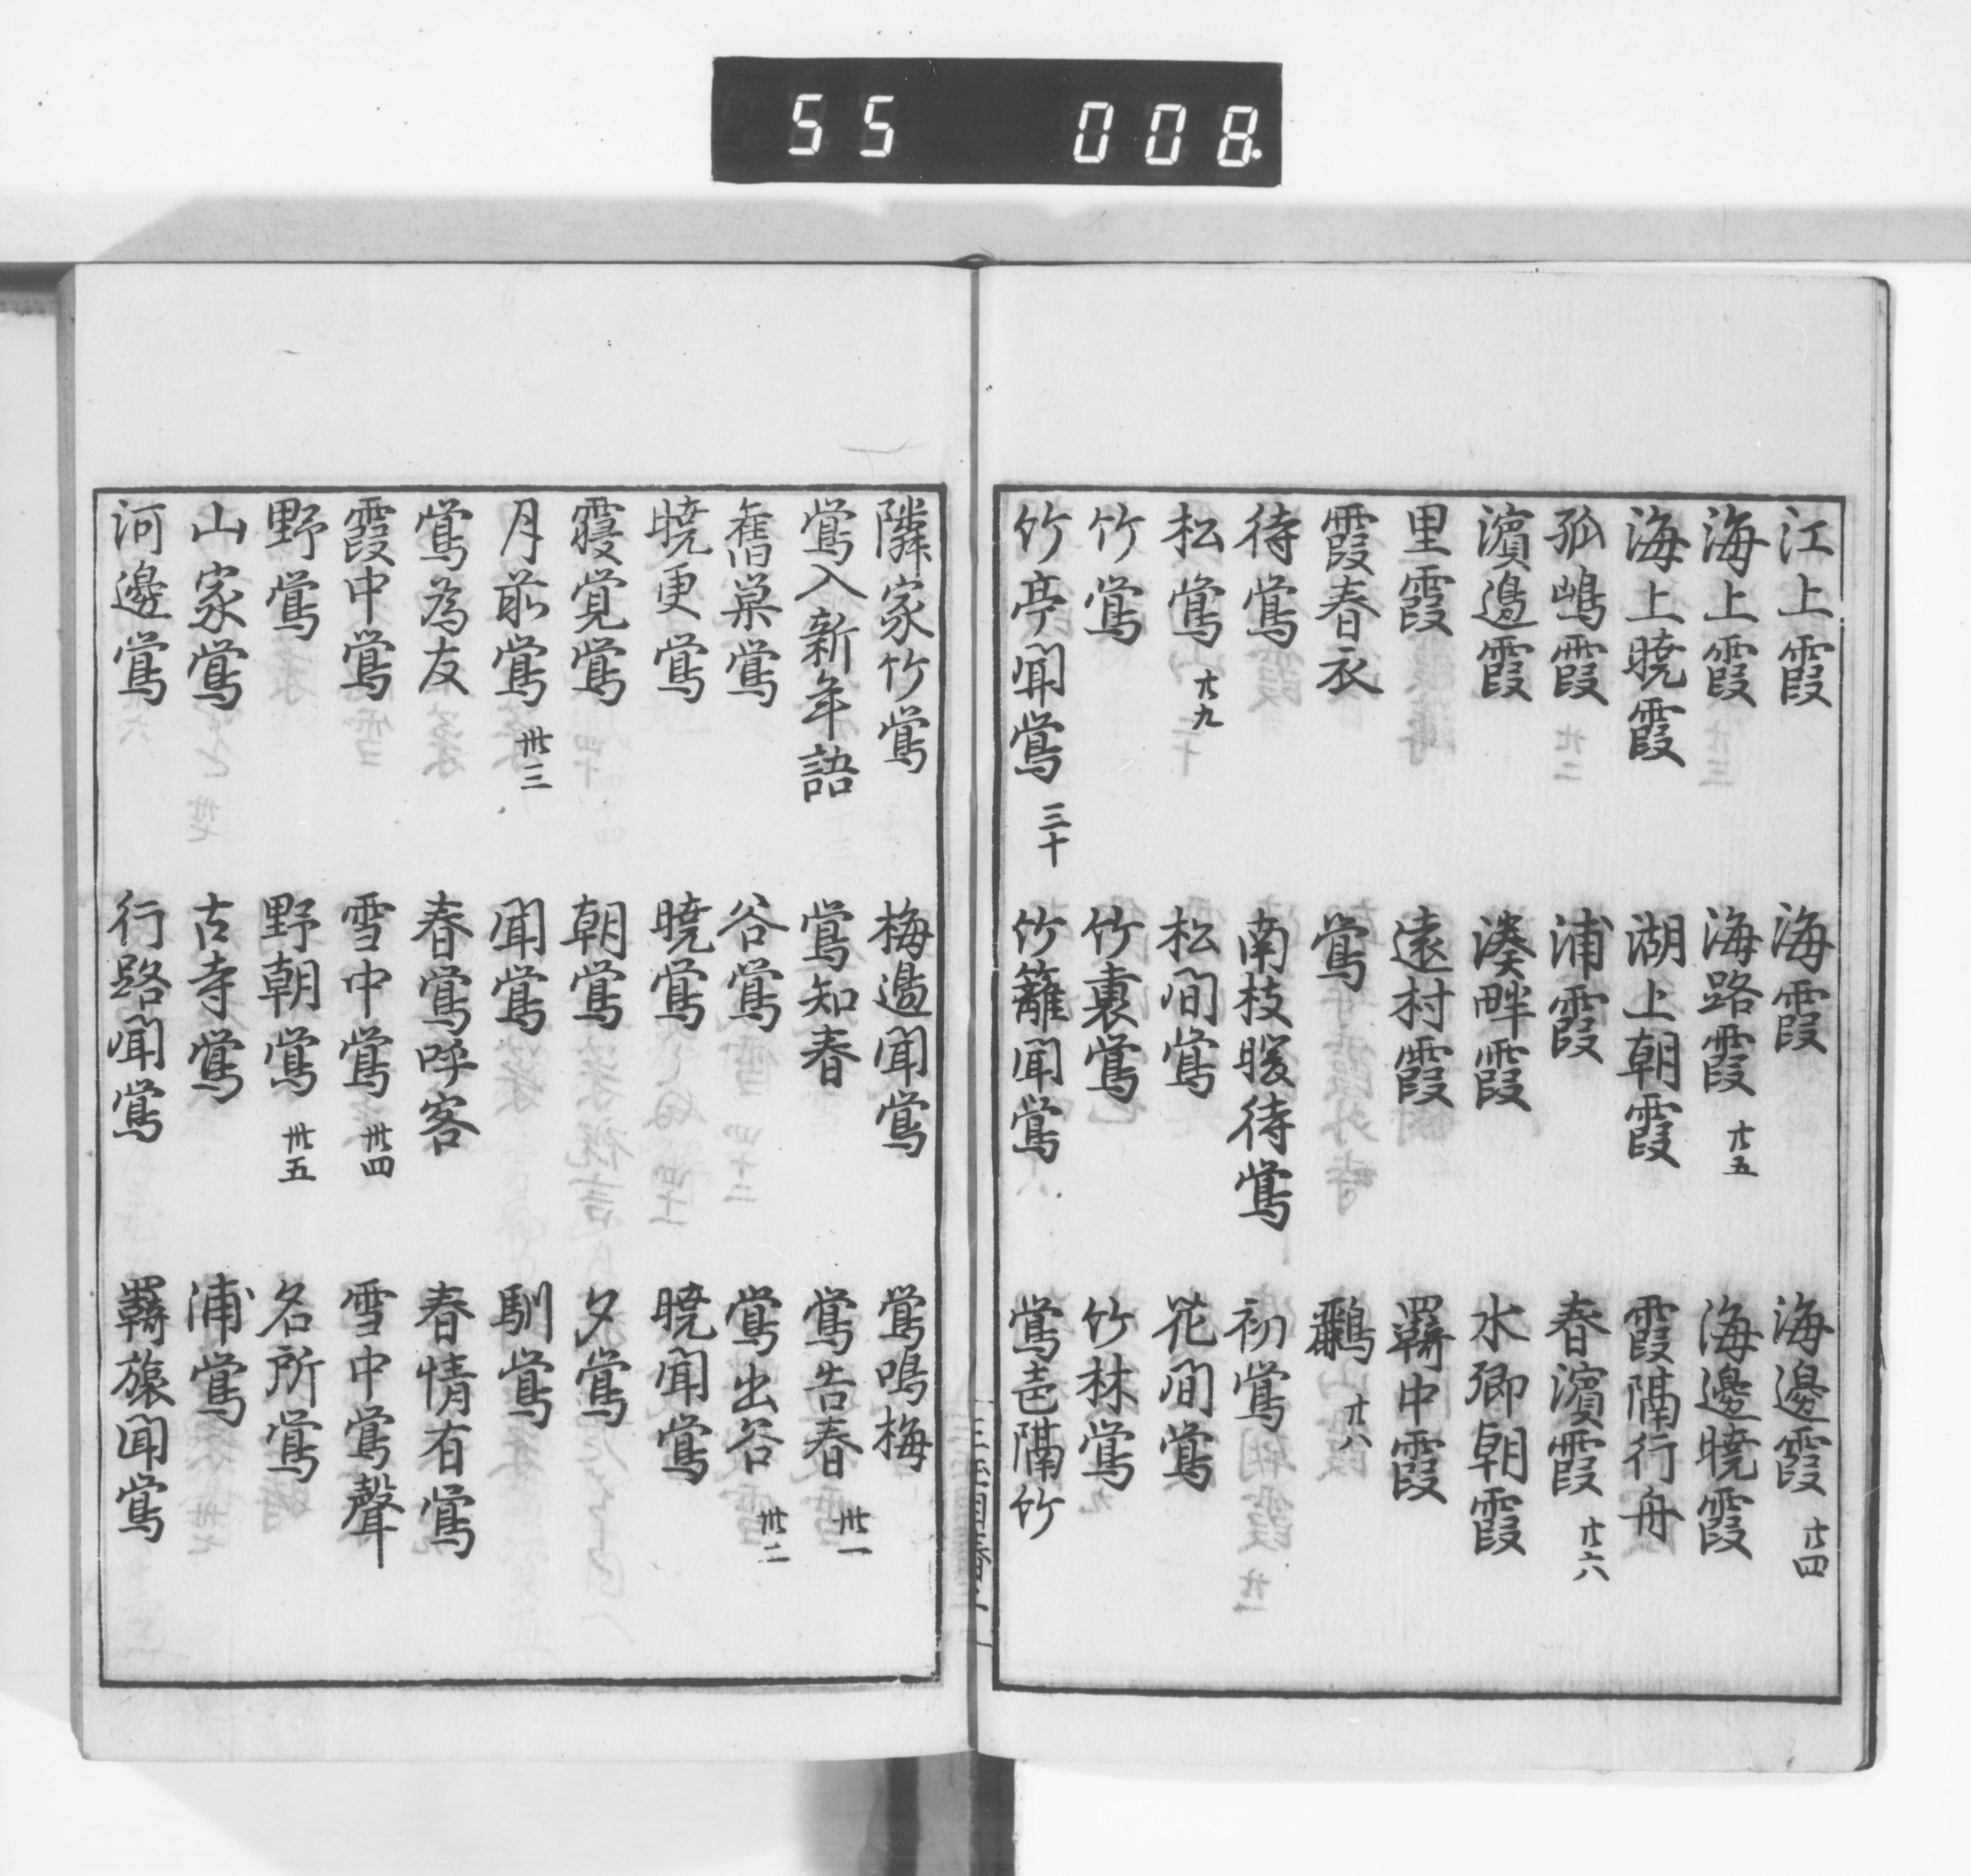 55 008.
江上霞 海霞 海邊霞 廿四
海上霞 海路霞 廿五 海邊暁霞
海上暁霞 湖上朝霞 霞隔行舟
孤嶋霞 浦霞 春濱霞 廿六
濱邊霞 湊畔霞 水郷朝霞
里霞 遠村霞 羇中霞
霞春衣 鶯 鸝 廿八
待鶯 南枝暖待鶯 初鶯
松鶯 廿九 松間鶯 花間鶯
竹鶯 竹裏鶯 竹林鶯
竹亭聞鶯 三十 竹籬聞鶯 鶯声隔竹
隣家竹鶯 梅邊聞鶯 鶯鳴梅
鶯入新年語 鶯知春 鶯告春 卅一
舊巣鶯 谷鶯 鶯出谷 卅二
暁更鶯 暁鶯 暁聞鶯
寝覚鶯 朝鶯 夕鶯
月前鶯 卅三 聞鶯 馴鶯
鶯為友 春鶯呼客 春情有鶯
霞中鶯 雪中鶯 卅四 雪中鶯聲
野鶯 野朝鶯 卅五 名所鶯
山家鶯 古寺鶯 浦鶯
河邊鶯 行路聞鶯 羇旅聞鶯